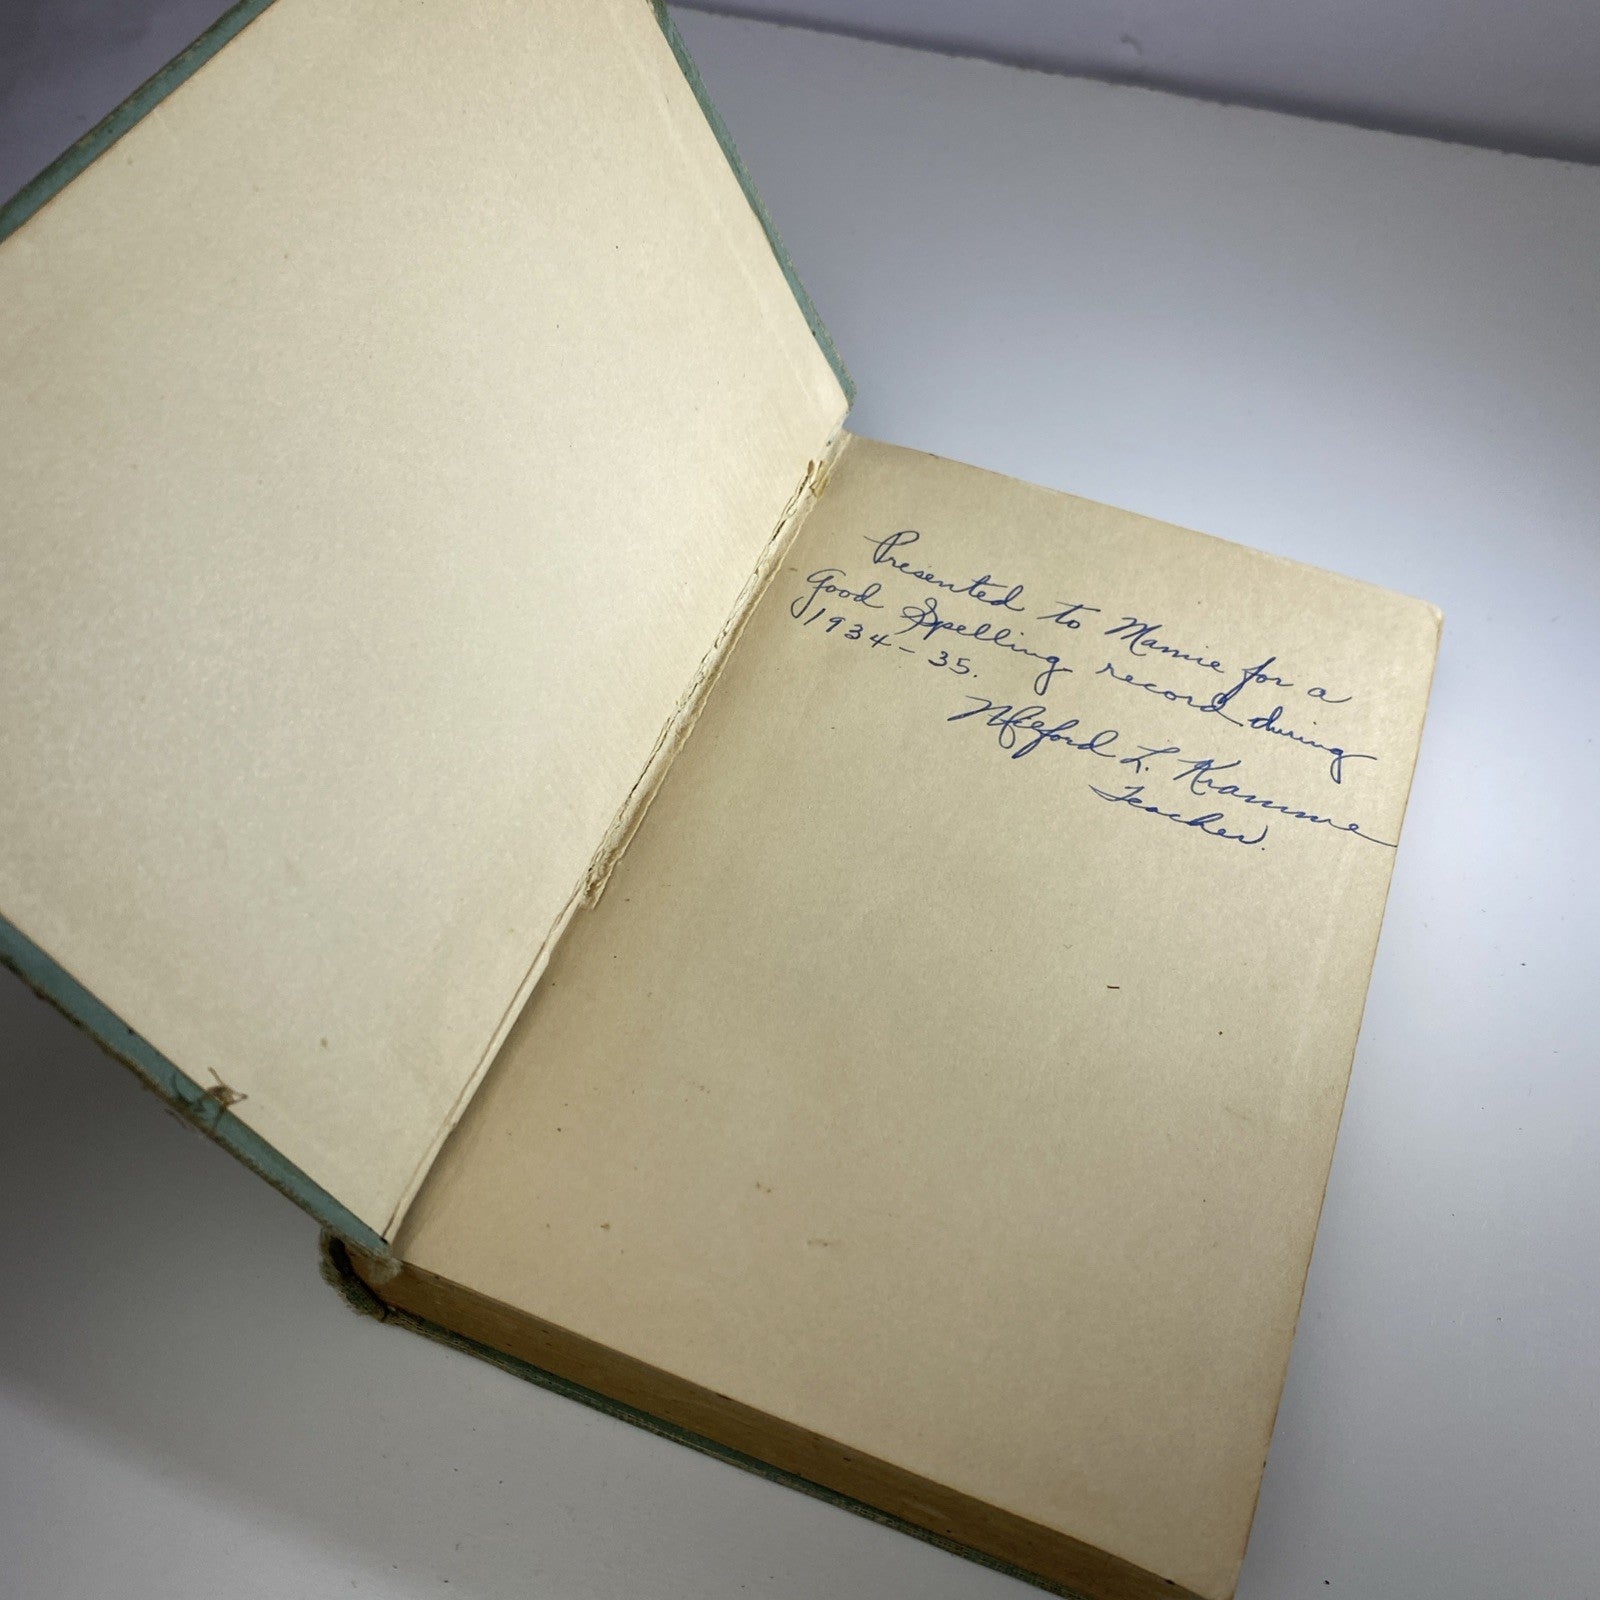 Presented to Mamie for a
Good Spelling record during
1934-35.
Milford L. Kramme
Teacher.